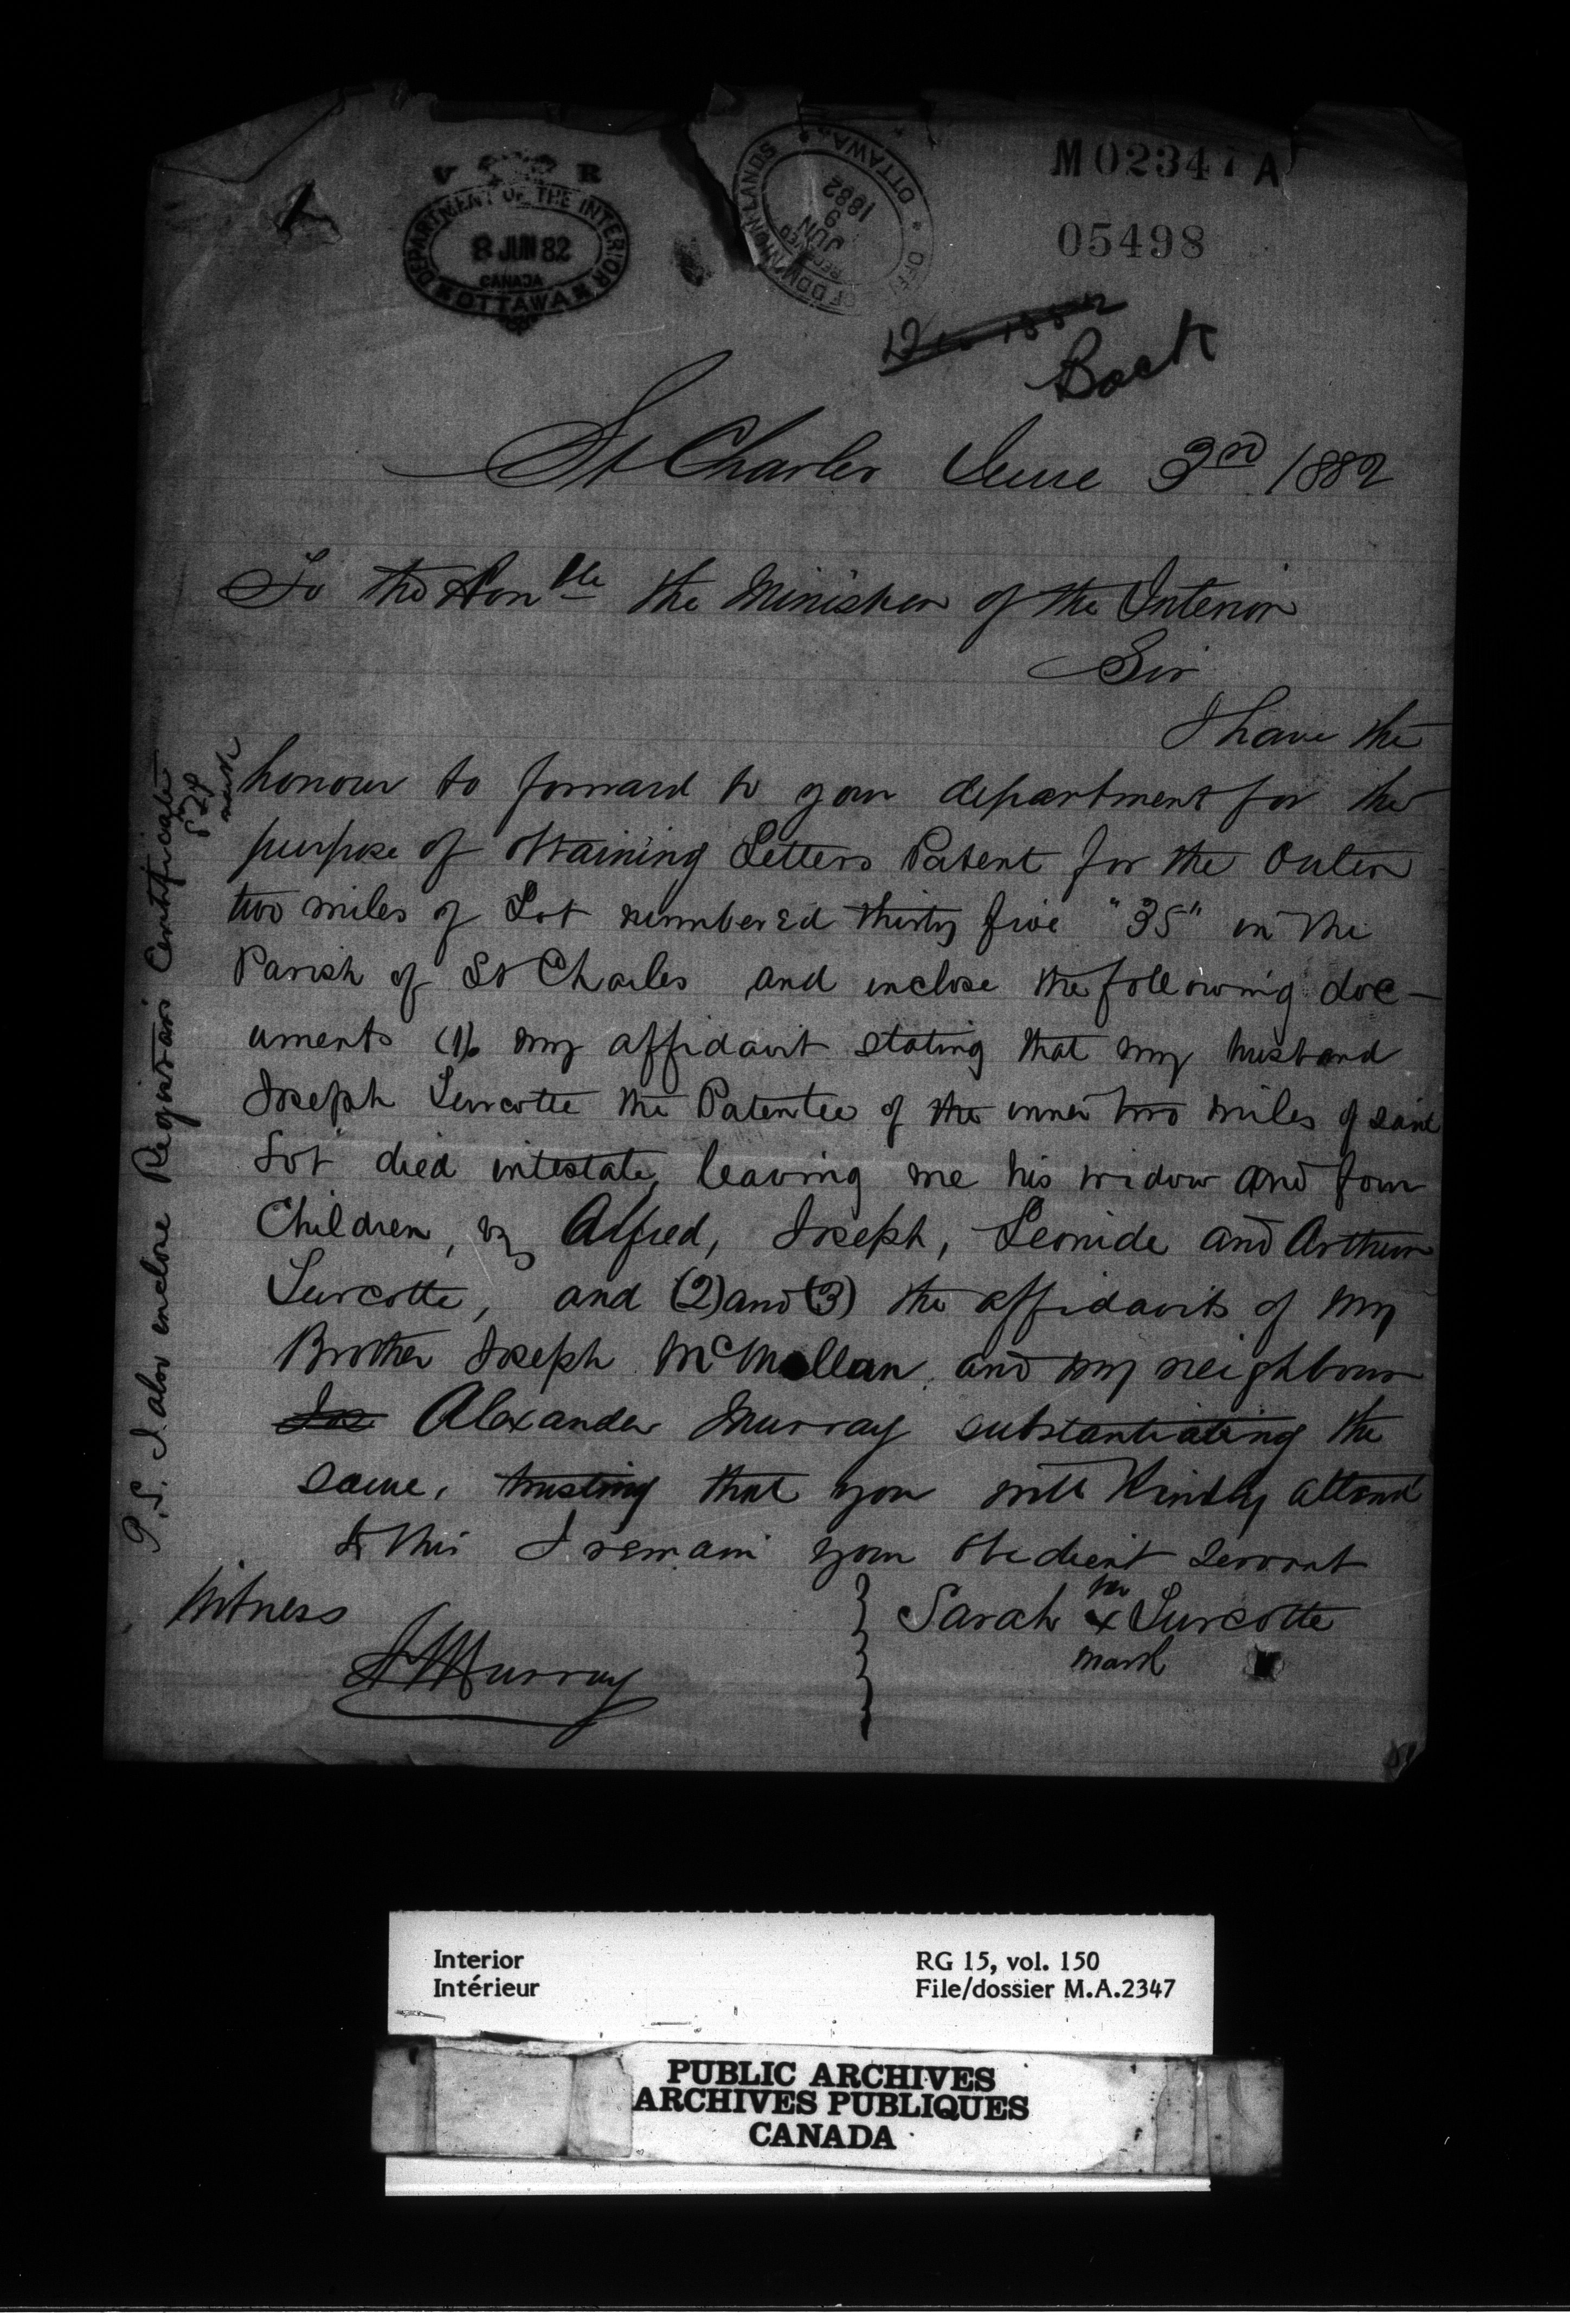 M 02347 A
V R
DEPARTMENT OF THE INTERIOR
8 JUN 82
CANADA
OTTAWA
OFFICE OF DOMINION LANDS
RECEIVED
JUN
9
1882
OTTAWA
05498
Back
St Charles June 3rd 1882
To the Honble the Minister of the Interior
Sir
I have the
honour to forward to your department for the
purpose of obtaining Letters Patent for the outer
two miles of Lot numbered thirty five "35" in the
Parish of St Charles and inclose the following doc-
uments (1) my affidavit stating that my husband
Joseph Turcotte the Patentee of the inner two miles of said
Lot died intestate, leaving me his widow and four
Children, viz Alfred, Joseph, Leonide and Arthur
Turcotte, and (2) and (3) the affidavits of my
Brother Joseph McMullan and my neighbour
Alexander Murray substantiating the
same, trusting that you will kindly attend
to this I remain your obedient servant
Witness
Sarah her x Turcotte
mark
A Murray
P.S. I also enclose Registrars Certificate
Interior
Intérieur
RG 15, vol. 150
File/dossier M.A.2347
PUBLIC ARCHIVES
ARCHIVES PUBLIQUES
CANADA